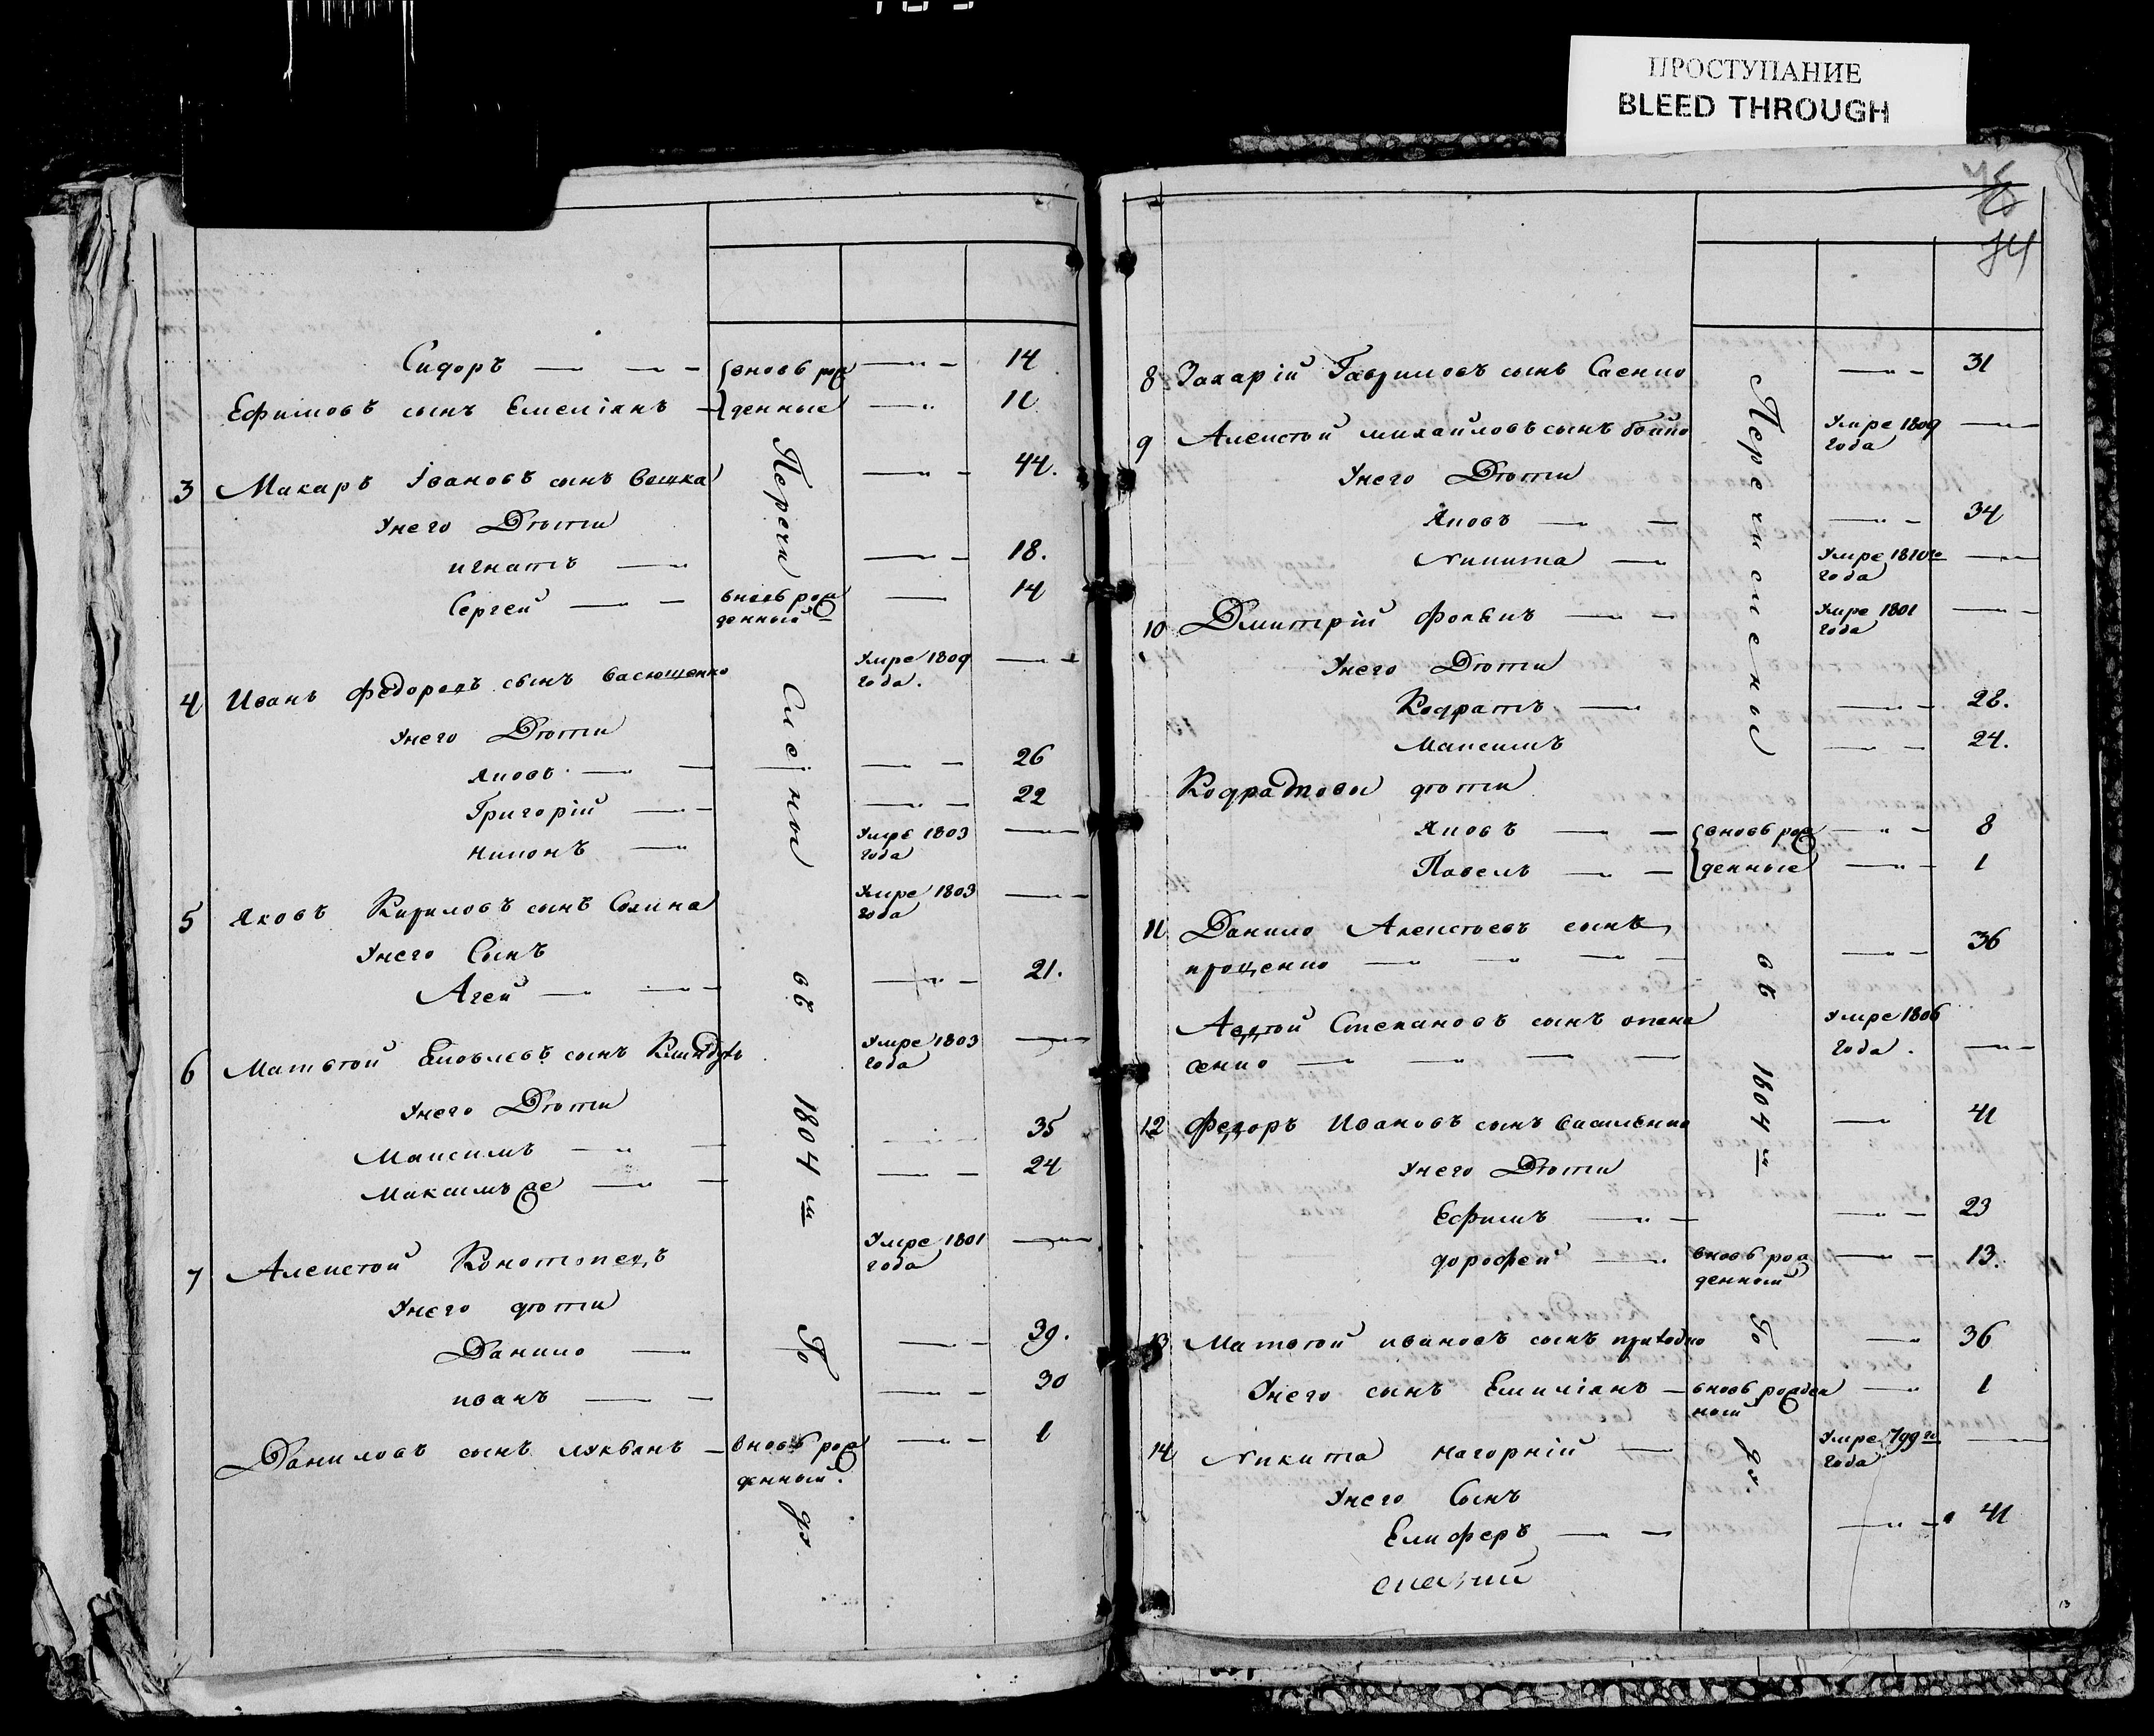 ПРОСТУПАНИЕ
BLEED THROUGH
74
Сидоръ вновь рож 14
Ефимовъ сынъ Емеліянъ денные 11
3 Макаръ Івановъ сынъ 44.
Унего Дѣти
игнатъ 18.
Сергей вновь рож 14
денный
4 Иванъ федоровъ сынъ васющенко Умре 1809
года.
Унего Дѣти
яковъ 26
Григорій 22
никонъ Умре 1803
года
5 яковъ Кириловъ сынъ Умре 1803
года
Унего Сынъ
Агей 21.
6 Матвѣй сынъ Умре 1803
года
Унего Дѣти
Максимъ 35
Максимъ же 24
7 Алексѣй Конотопецъ Умре 1801
года
Унего дѣти
Данило 39.
иванъ 30
Даниловъ сынъ лукьянъ вновь рож 1
денный.
въ 1804 м Го
8 Захарій Гавриловъ сынъ 31
9 Алексѣй михайловъ сынъ бойко Умре 1809
года
Унего Дѣти
яковъ 34
Никита Умре 1810го
года
10 Дмитрій Умре 1801
года
Унего Дѣти
Кодратъ 28.
Максимъ 24.
Кодратовы дѣти
яковъ вновь рож 8
Павелъ денные 1
11 Данило Алексѣевъ сынъ
проценко 36
Степановъ сынъ Умре 1806
сенко года.
12 федоръ Ивановъ сынъ василенко 41
Унего Дѣти
Ефимъ 23
дорофей вновь рож 13.
денный
13 Матвѣй ивановъ сынъ приходко 36
Унего сынъ Емиліянъ вновь рожден 1
ный
14 Никита нагорній Умре 799го
года
Унего Сынъ
Елиферъ 41
въ 1804 м Го